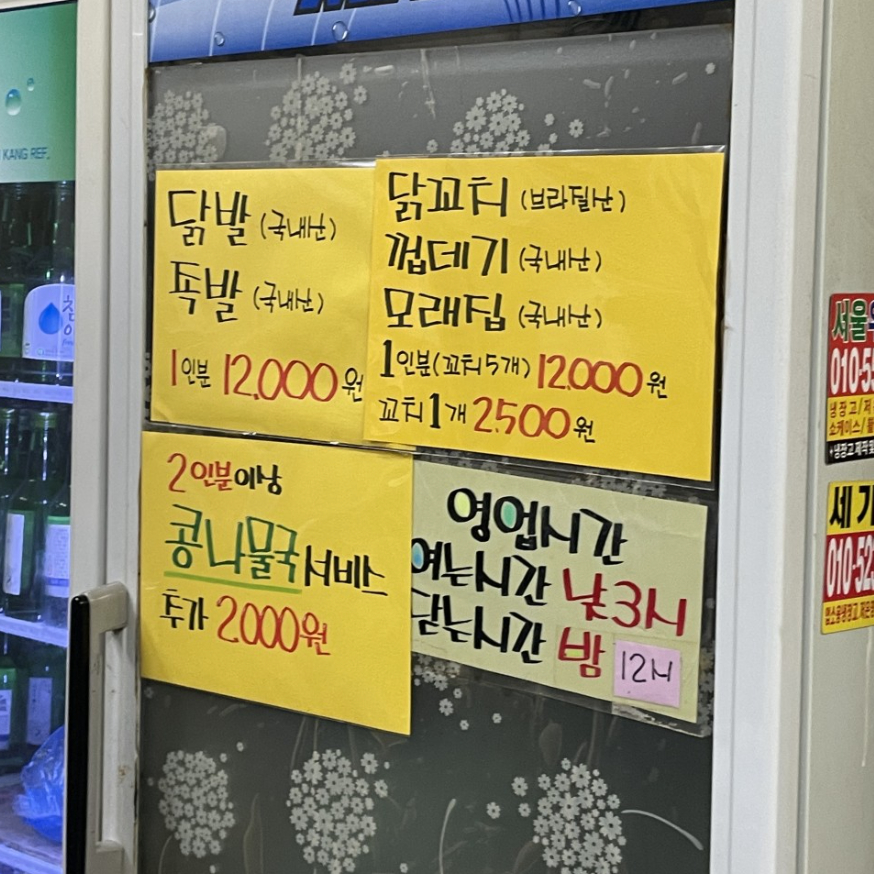 KANG REF.
닭발 (국내산)
족발 (국내산)
1인분 12,000원
닭꼬치 (브라질산)
껍데기 (국내산)
모래집 (국내산)
1인분(꼬치5개) 12,000원
꼬치1개 2,500원
2인분이상
콩나물국 서비스
추가 2,000원
영업시간
여는시간 낮3시
닫는시간 밤 12시
서울
010-5
냉장고/저
쇼케이스/
*냉장고제작및
세기
010-523